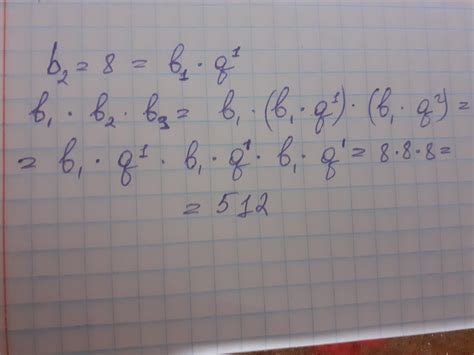 b₂ = 8 = b₁ · q¹
b₁ · b₂ · b₃ = b₁ · (b₁ · q¹) · (b₁ · q²) =
= b₁ · q¹ · b₁ · q¹ · b₁ · q¹ = 8 · 8 · 8 =
= 512